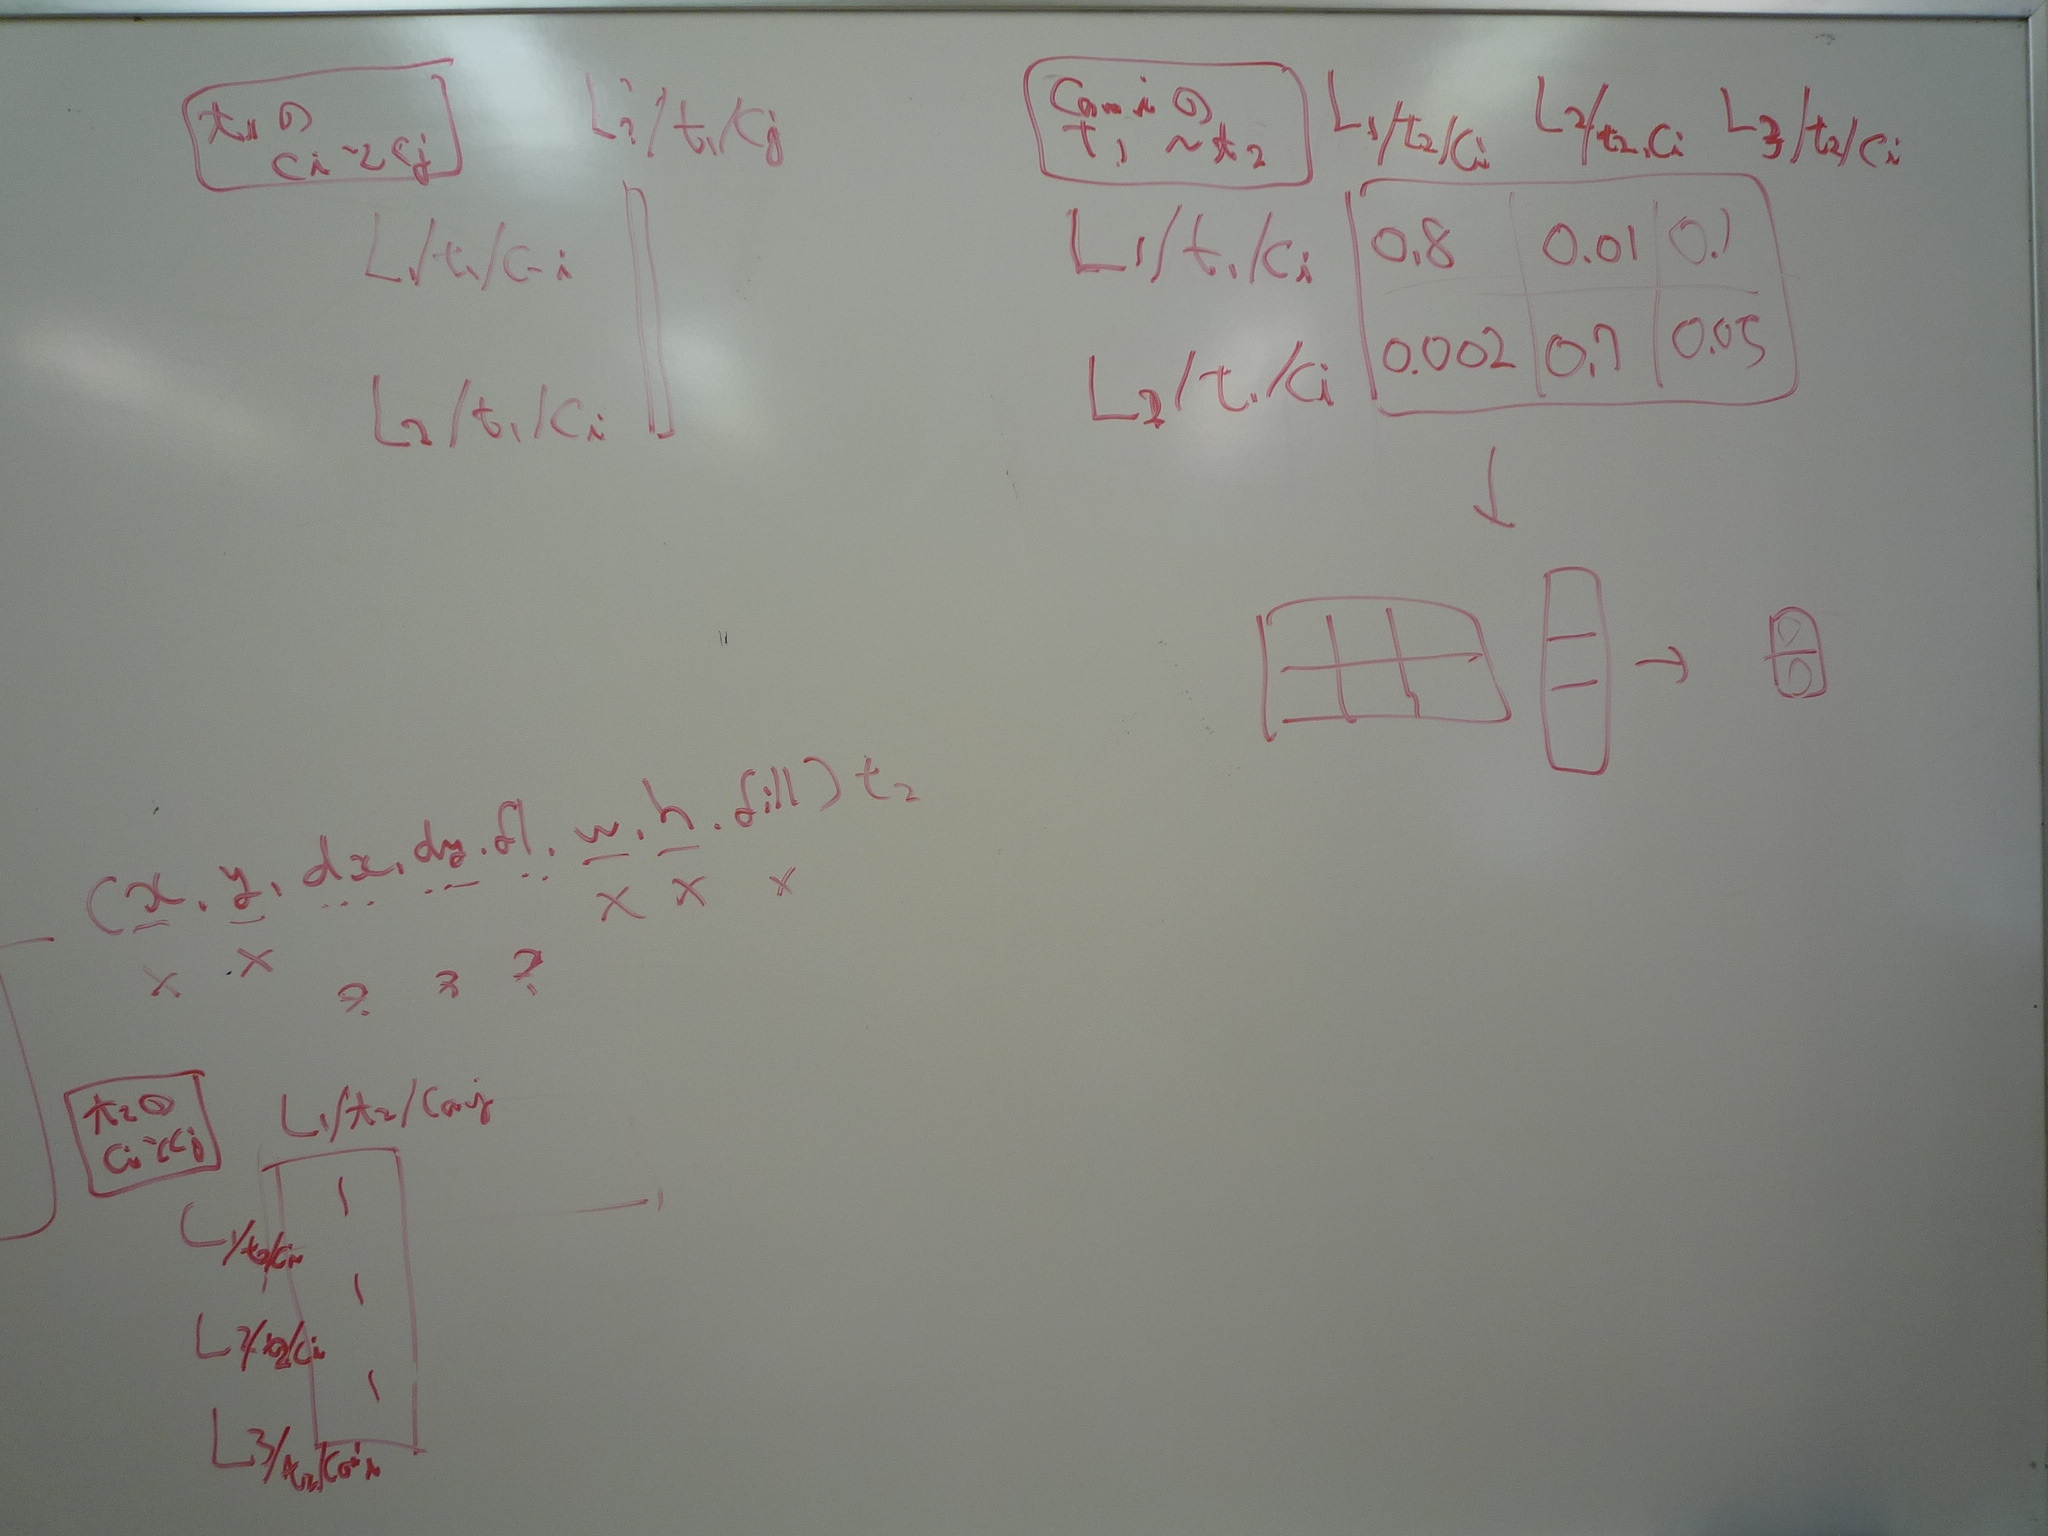 t1の
ciとcj
L?/t1/cj
L1/t1/ci
L2/t1/ci
Cam iの
t1 ~ t2
L1/t2/ci L2/t2,ci L3/t2/ci
L1/t1/ci 0.8 0.01 0.1
L2/t1/ci 0.002 0.7 0.05
↓
→
(x, y, dx, dy, fl, w, h, fill) t2
x x ? ? ? x x x
t2の
ciとcj
L1/t2/camj
L1/t2/ci 1
L2/t2/ci 1
L3/t2/cami 1